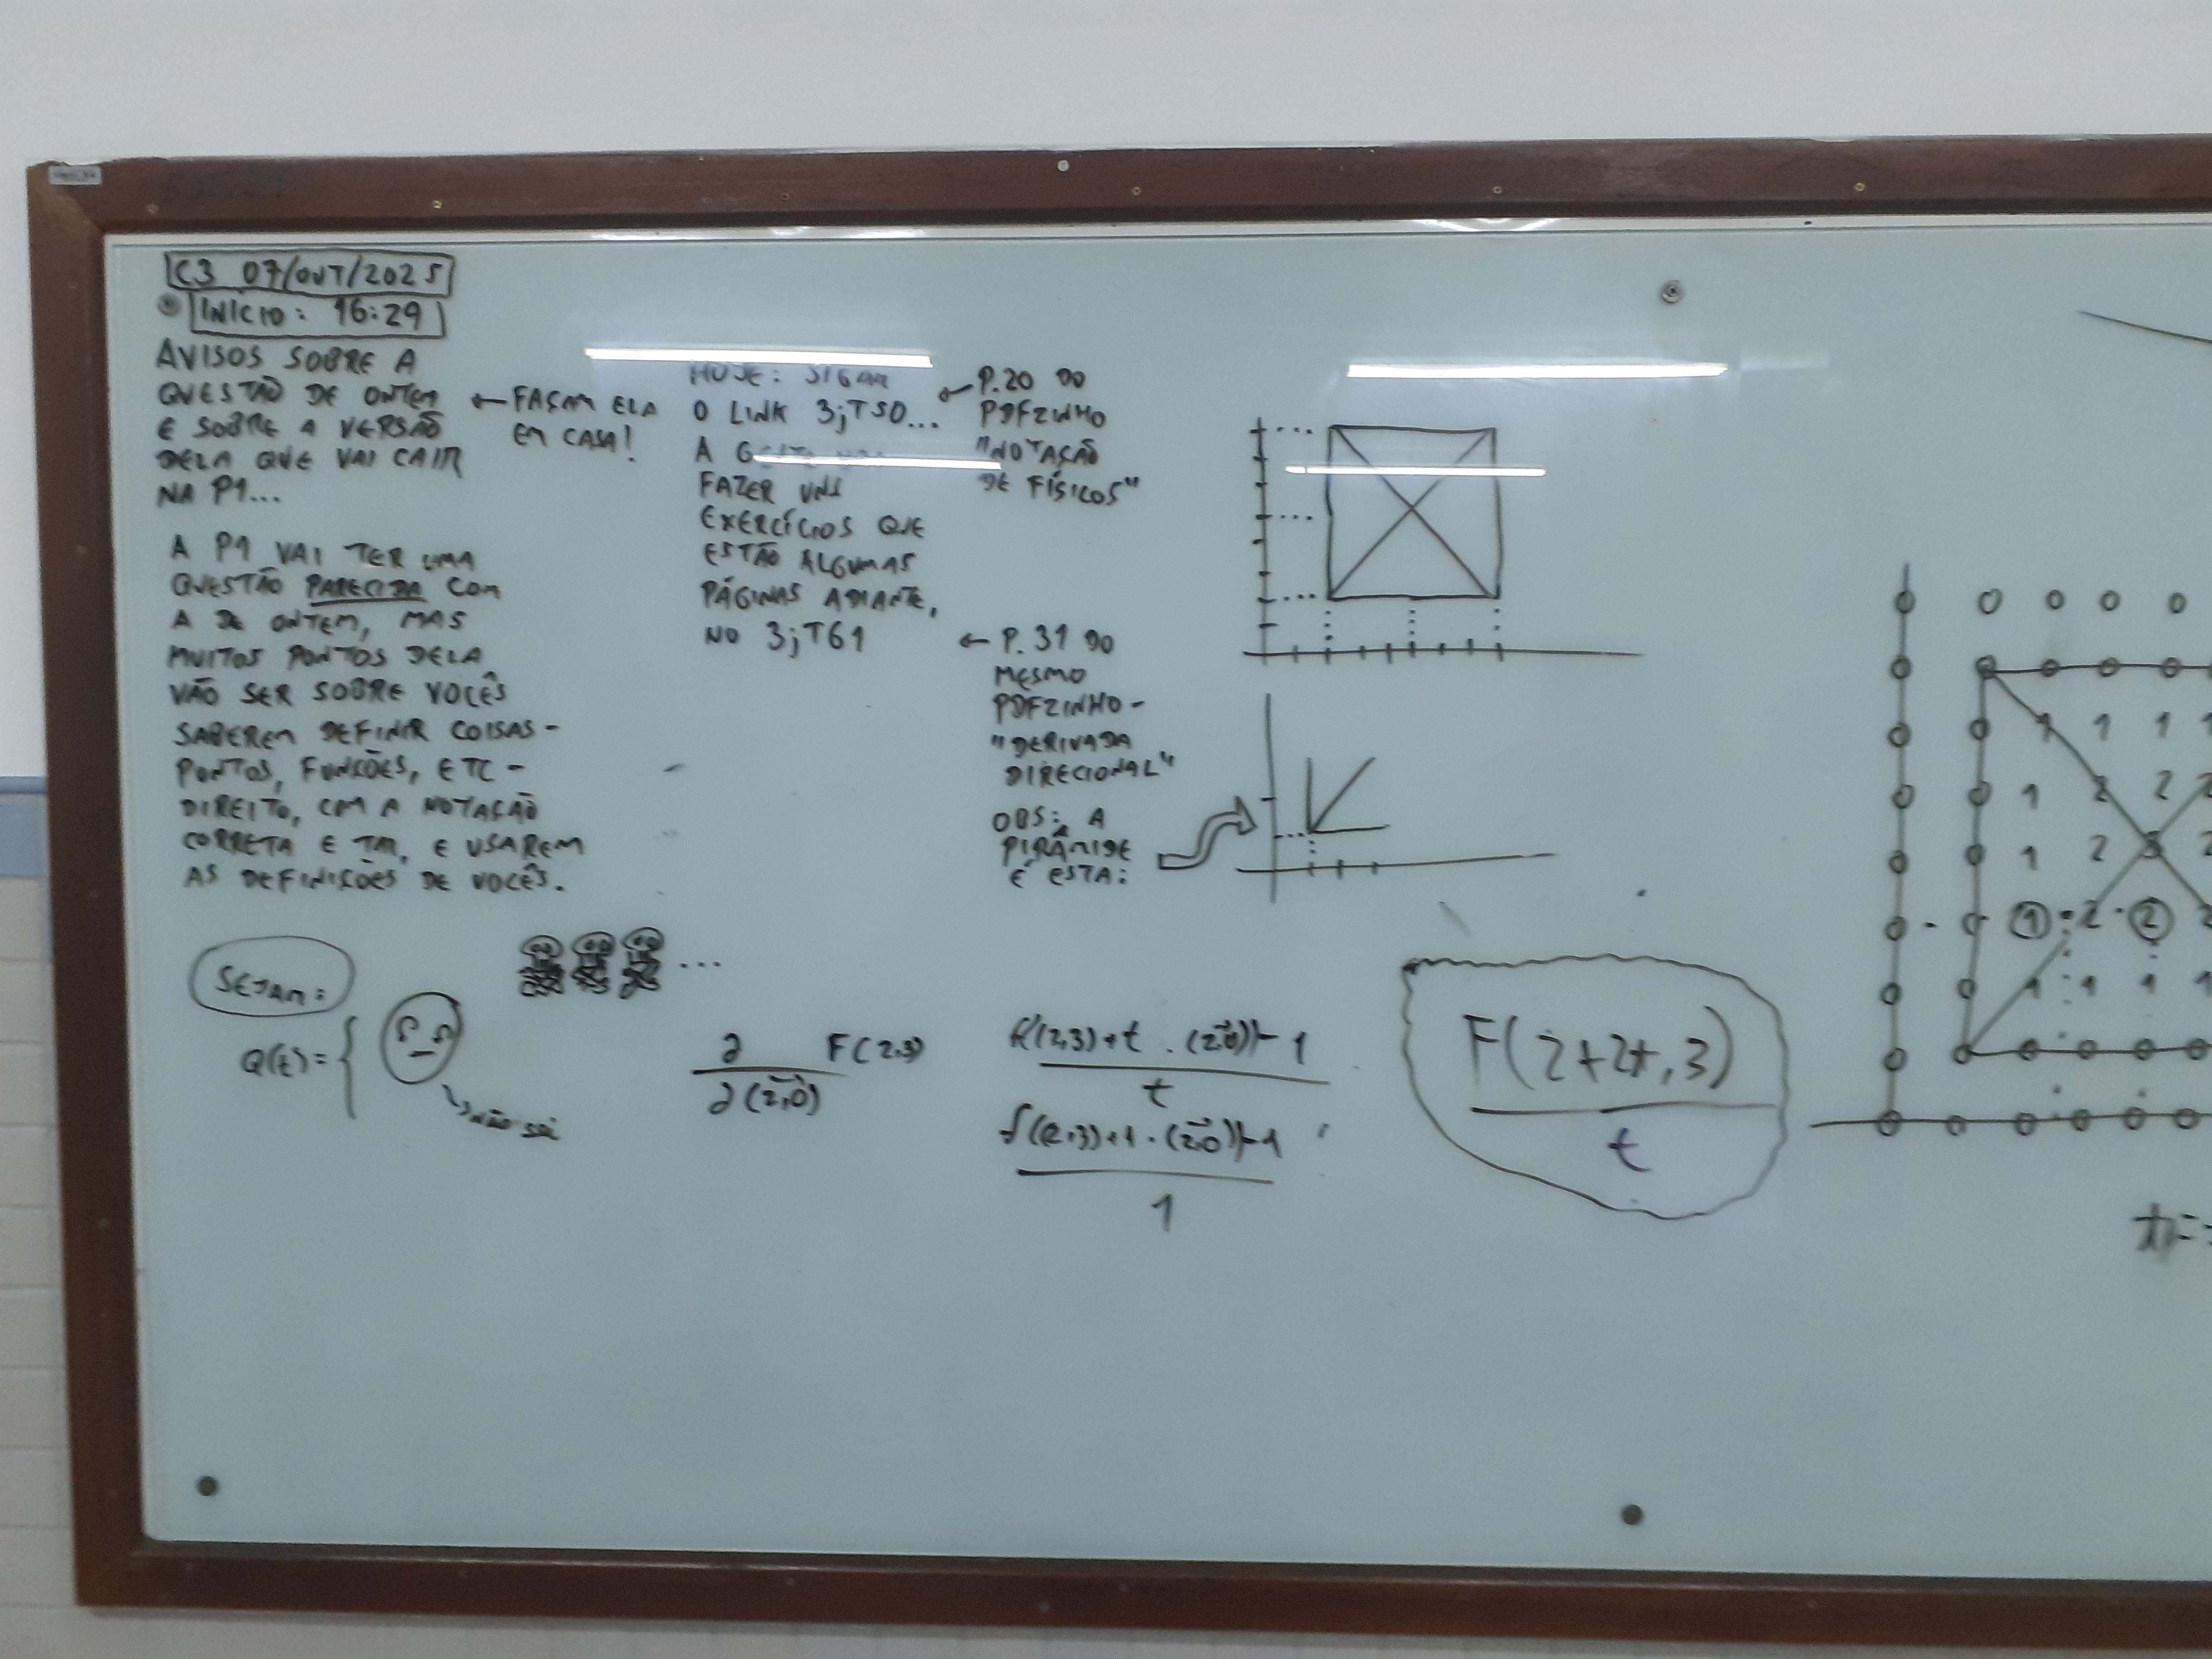 C3 07/OUT/2025
INÍCIO: 16:29
AVISOS SOBRE A
QUESTÃO DE ONTEM
E SOBRE A VERSÃO
DELA QUE VAI CAIR
NA P1...
← FAÇAM ELA
EM CASA!
A P1 VAI TER UMA
QUESTÃO PARECIDA COM
A DE ONTEM, MAS
MUITOS PONTOS DELA
VÃO SER SOBRE VOCÊS
SABEREM DEFINIR COISAS -
PONTOS, FUNÇÕES, ETC -
DIREITO, COM A NOTAÇÃO
CORRETA E TAL, E USAREM
AS DEFINIÇÕES DE VOCÊS.
HOJE: SIGAM
O LINK 3;T50...
A
FAZER UNS
EXERCÍCIOS QUE
ESTÃO ALGUMAS
PÁGINAS ADIANTE,
NO 3;T61
← P.20 DO
PDFZINHO
"NOTAÇÃO
DE FÍSICOS"
← P.31 DO
MESMO
PDFZINHO -
"DERIVADA
DIRECIONAL"
OBS: A
PIRÂMIDE
É ESTA:
SEJAM:
...
Q(t) = {
NÃO SEI
∂ F(2,3)
∂(2,0)
f((2,3)+t.(2,0))-1
t
f((2,3)+1.(2,0))-1
1
F(2+2t,3)
t
0 0 0 0 0
0 0 0 0 0
0 0 1 1 1 1
0 0 1 2 2 2
0 0 1 2 3 2
0 0 1 2 2
0 0 1 1 1 1
0 0 0 0 0 0
0 0 0 0 0 0